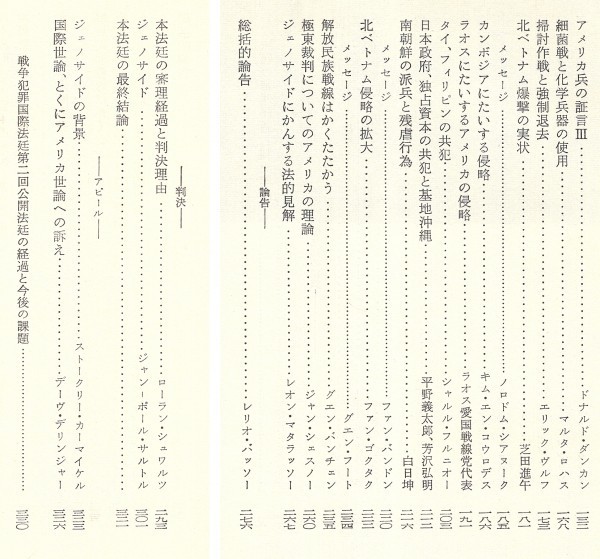 アメリカ兵の証言Ⅲ……ドナルド・ダンカン 一三一
細菌戦と化学兵器の使用……マルタ・ロハス 一六八
掃討作戦と強制退去……エリック・ヴルフ 一七三
北ベトナム爆撃の実状……芝田進午 一八一
メッセージ……ノロドム・シアヌーク 一八五
カンボジアにたいする侵略……キム・エン・コウロデス 一八六
ラオスにたいするアメリカの侵略……ラオス愛国戦線党代表 一九一
タイ、フィリピンの共犯……シャルル・フルニオー 二〇三
日本政府、独占資本の共犯と基地沖縄……平野義太郎、芳沢弘明 二一一
南朝鮮の派兵と残虐行為……白日坤 二一六
メッセージ……ファン・バンドン 二二〇
北ベトナム侵略の拡大……ファン・ゴクタク 二二二
メッセージ……グエン・フート 二三四
解放民族戦線はかくたたかう……グエン・バンチェン 二三五
極東裁判についてのアメリカの理論……ジャン・シェスノー 二六〇
ジェノサイドにかんする法的見解……レオン・マタラッソー 二六七
――論告――
総括的論告……レリオ・バッソー 二七六
――判決――
本法廷の審理経過と判決理由……ローラン・シュワルツ 二九三
ジェノサイド……ジャン=ポール・サルトル 三〇一
本法廷の最終結論……三二一
――アピール――
ジェノサイドの背景……ストークリー・カーマイケル 三二三
国際世論、とくにアメリカ世論への訴え……デーヴ・デリンジャー 三二六
戦争犯罪国際法廷第二回公開法廷の経過と今後の課題……三三〇